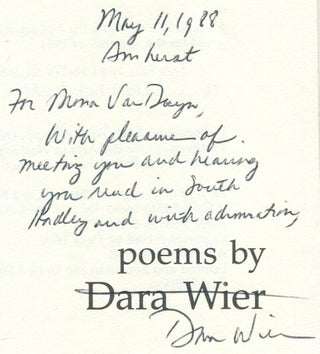 May 11, 1988
Amherst
For Mona Van Duyn,
With pleasure of
meeting you and hearing
you read in South
Hadley and with admiration,
poems by
Dara Wier
Dara Wier